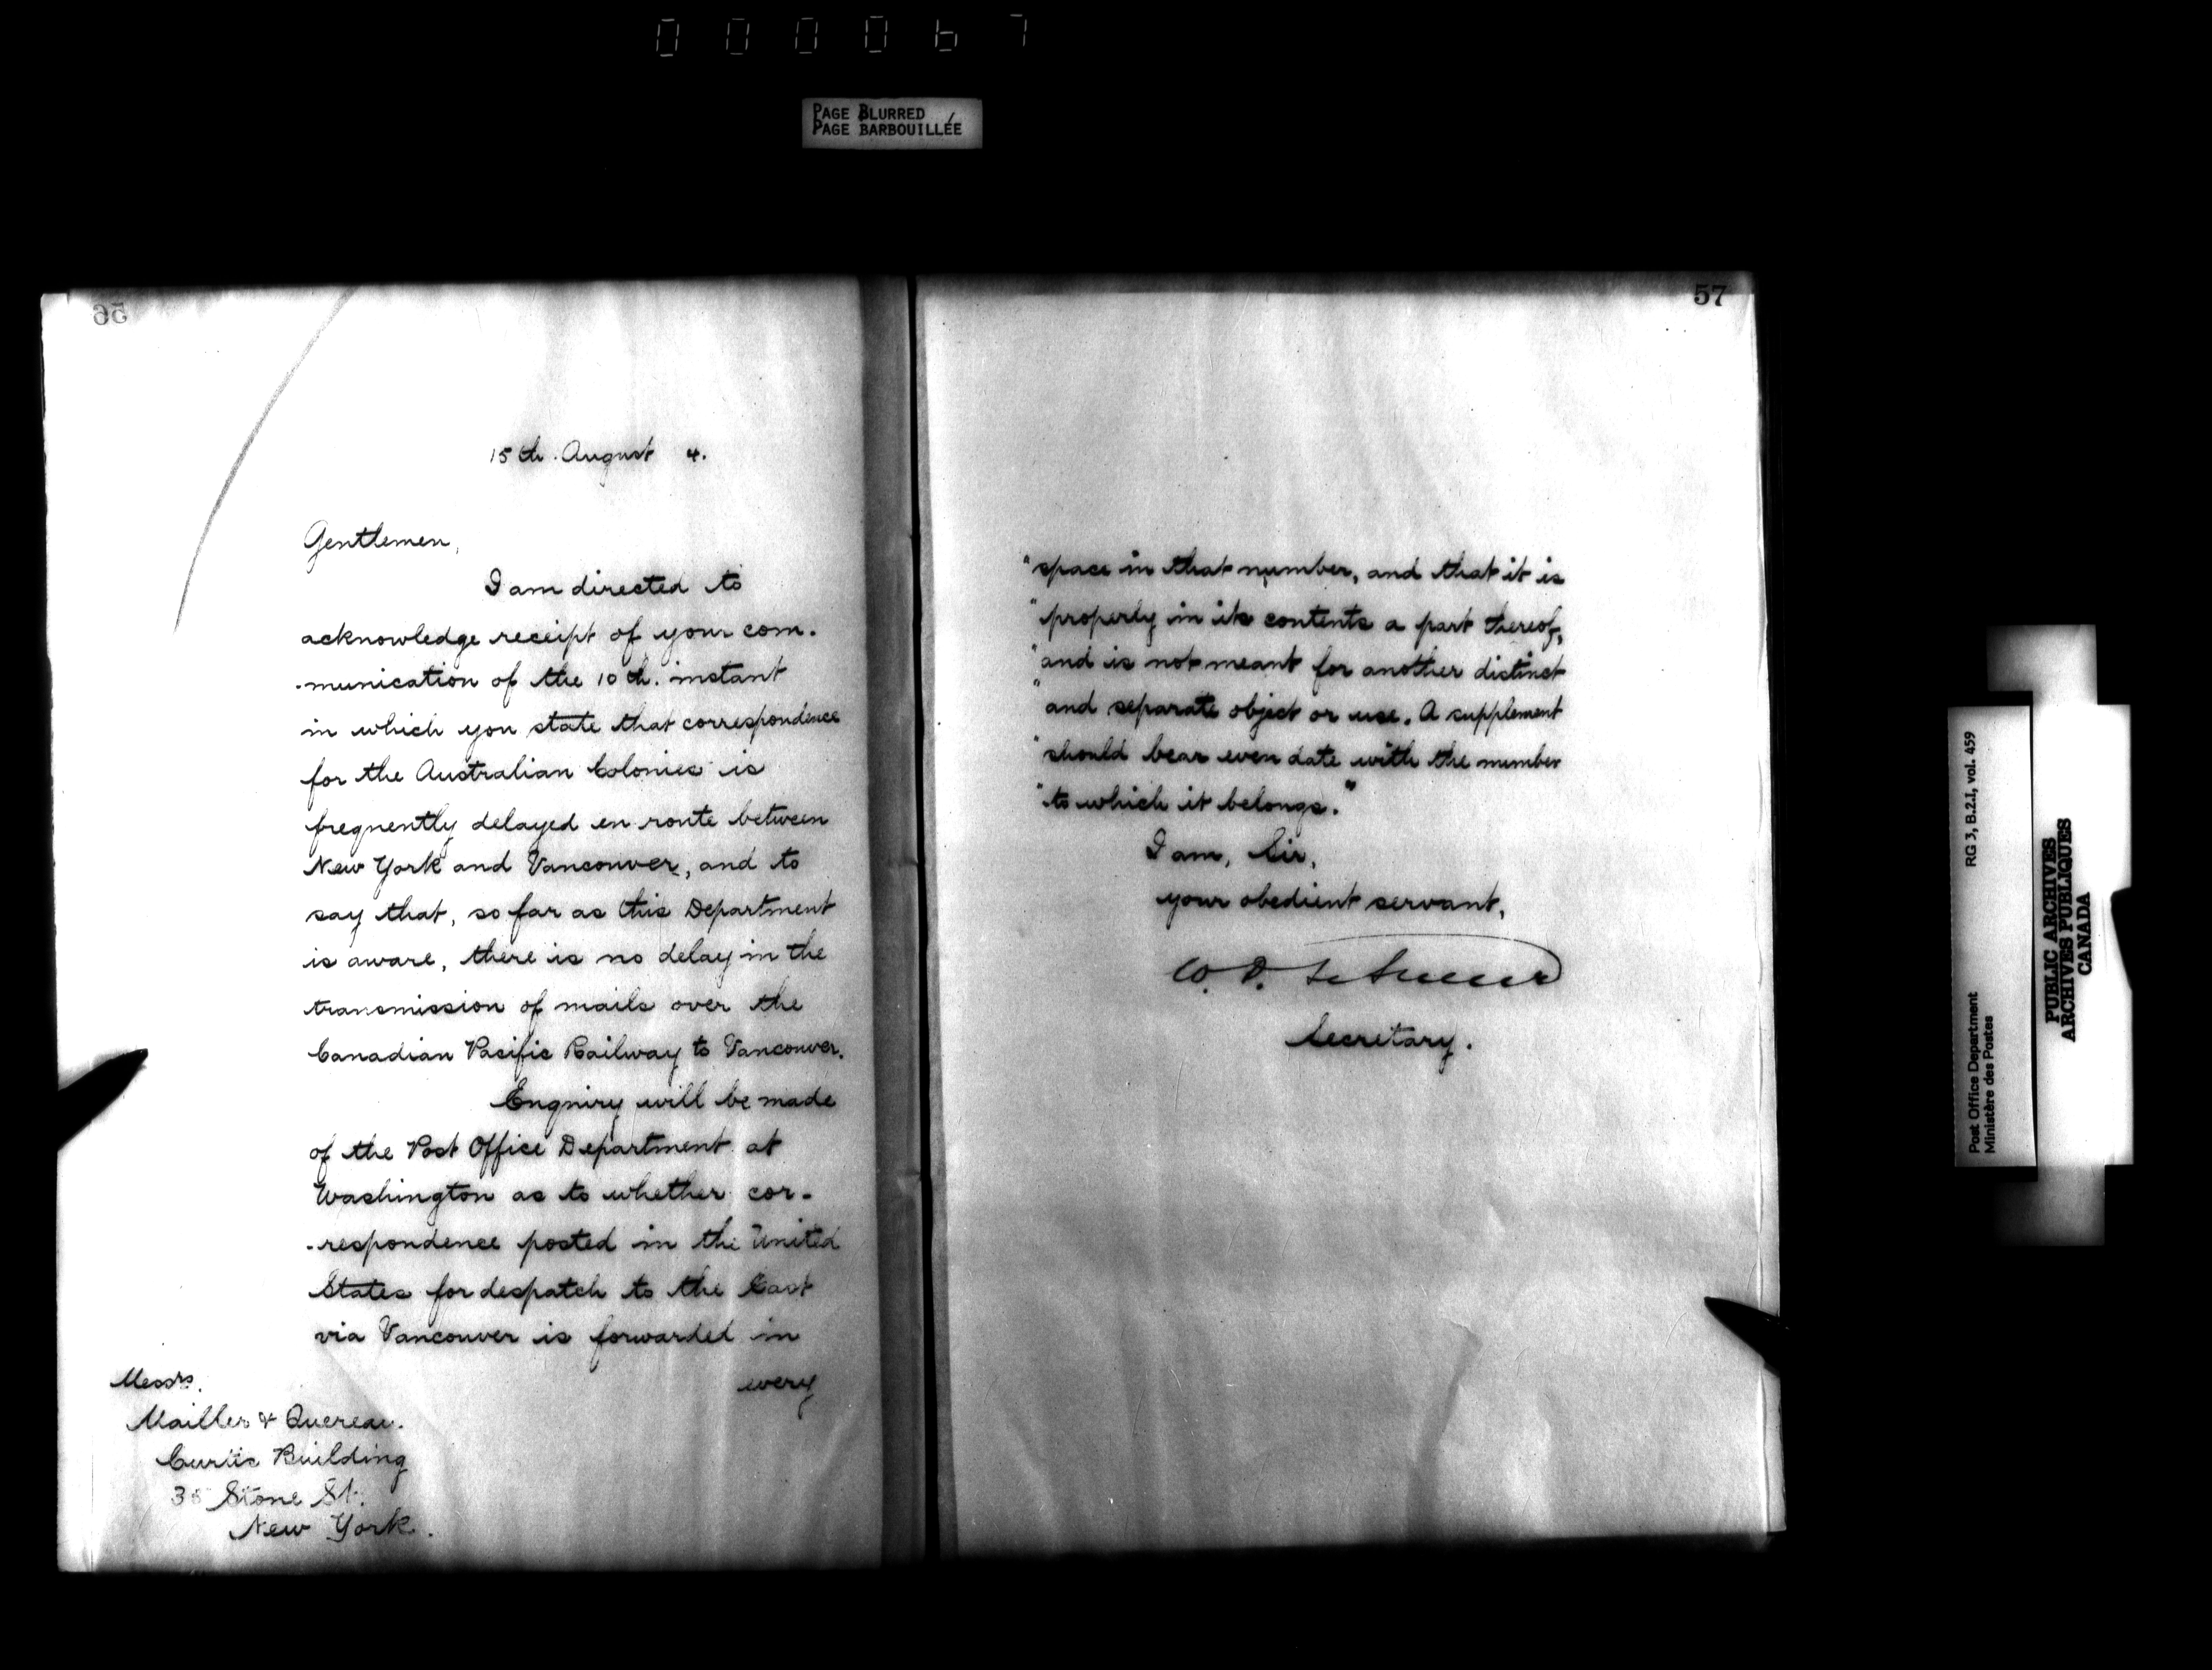 000067
PAGE BLURRED
PAGE BARBOUILLÉE
56
15th. August 4.
Gentlemen,
I am directed to
acknowledge receipt of your com-
-munication of the 10th. instant
in which you state that correspondence
for the Australian Colonies is
frequently delayed en route between
New York and Vancouver, and to
say that, so far as this Department
is aware, there is no delay in the
transmission of mails over the
Canadian Pacific Railway to Vancouver.
Enquiry will be made
of the Post Office Department at
Washington as to whether cor-
-respondence posted in the United
States for despatch to the East
via Vancouver is forwarded in
every
Messrs.
Mailler & Quereau.
Curtis Building
35 Stone St.
New York.
57
"space in that number, and that it is
"properly in its contents a part thereof,
"and is not meant for another distinct
"and separate object or use. A supplement
"should bear even date with the number
"to which it belongs."
I am, Sir,
your obedient servant,
W. D. LeSueur
Secretary.
Post Office Department RG 3, B.2.1, vol. 459
Ministère des Postes
PUBLIC ARCHIVES
ARCHIVES PUBLIQUES
CANADA